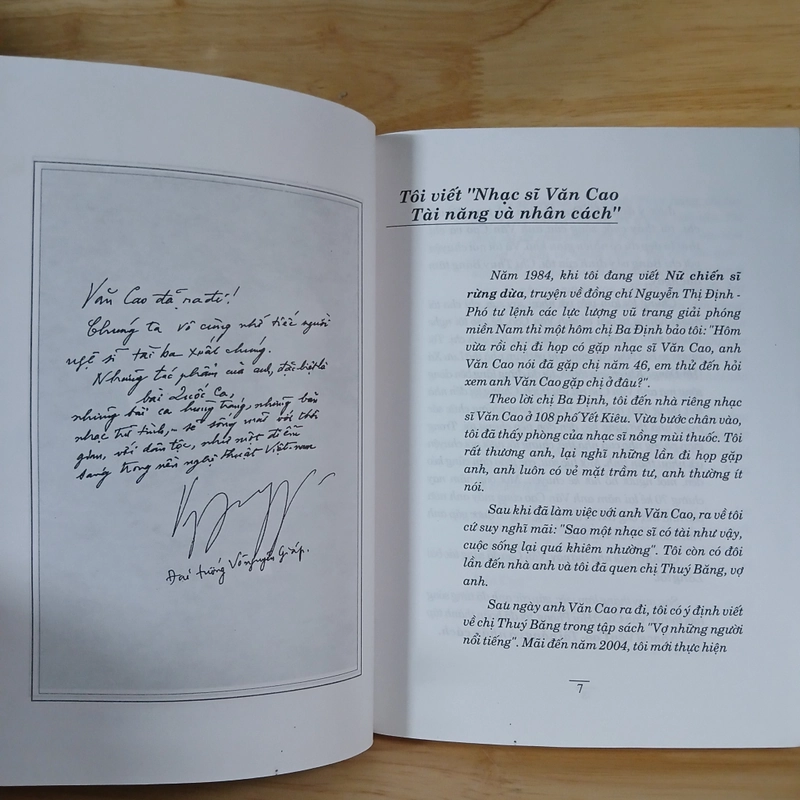 Văn Cao đã ra đi!
Chúng ta vô cùng nhớ tiếc người
nghệ sĩ tài ba xuất chúng.
Những tác phẩm của anh, đặc biệt là
bài Quốc Ca,
những bài ca hùng tráng, những bản
nhạc trữ tình, sẽ sống mãi với thời
gian, với dân tộc, như một điểm
sáng trong nền nghệ thuật Việt nam
Đại tướng Võ nguyên Giáp.
Tôi viết "Nhạc sĩ Văn Cao
Tài năng và nhân cách"
Năm 1984, khi tôi đang viết Nữ chiến sĩ
rừng dừa, truyện về đồng chí Nguyễn Thị Định -
Phó tư lệnh các lực lượng vũ trang giải phóng
miền Nam thì một hôm chị Ba Định bảo tôi: "Hôm
vừa rồi chị đi họp có gặp nhạc sĩ Văn Cao, anh
Văn Cao nói đã gặp chị năm 46, em thử đến hỏi
xem anh Văn Cao gặp chị ở đâu?".
Theo lời chị Ba Định, tôi đến nhà riêng nhạc
sĩ Văn Cao ở 108 phố Yết Kiêu. Vừa bước chân vào,
tôi đã thấy phòng của nhạc sĩ nồng mùi thuốc. Tôi
rất thương anh, lại nghĩ những lần đi họp gặp
anh, anh luôn có vẻ mặt trầm tư, anh thường ít
nói.
Sau khi đã làm việc với anh Văn Cao, ra về tôi
cứ suy nghĩ mãi: "Sao một nhạc sĩ có tài như vậy,
cuộc sống lại quá khiêm nhường". Tôi còn có đôi
lần đến nhà anh và tôi đã quen chị Thuý Băng, vợ
anh.
Sau ngày anh Văn Cao ra đi, tôi có ý định viết
về chị Thuý Băng trong tập sách "Vợ những người
nổi tiếng". Mãi đến năm 2004, tôi mới thực hiện
7